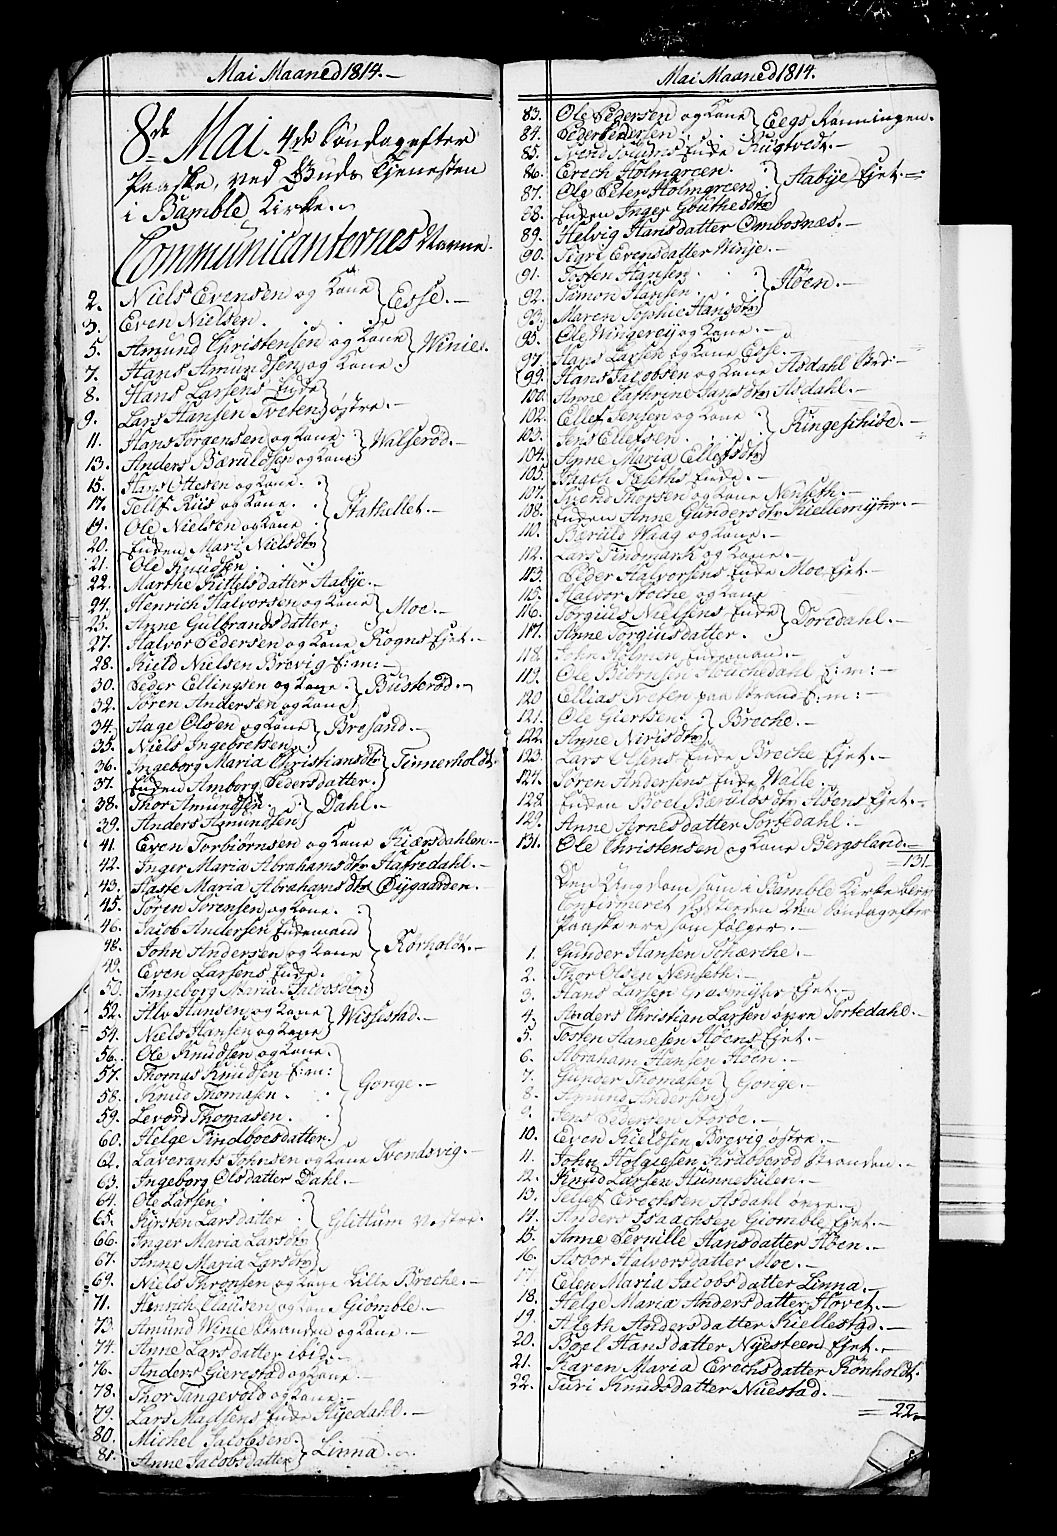 Mai Maaned 1814.-
8de Mai. 4de Søndag efter
Paaske, ved Guds Tjenesten
i Bamble Kirke.
Communicanternes Navne.
2. Niels Evensen og Kone } Esse.-
3. Even Nielsen.
5. Amund Christensen og Kone } Winie.
7. Hans Amundsen og Kone.
8. Hans Larsens Enke
9. Lars Hansen Tveten } østre.-
11. Hans Jørgensen og Kone. } Valserød.-
13. Anders Bæruldsen og Kone.
15. Hans Ottesen og Kone.
17. Tellf Riis og Kone.
19. Ole Nielsen og Kone } Stathellet.-
20. Enken Mari Nielsdtr
21. Ole Knudsen.
22. Marthe Kittelsdatter Aabye.-
24. Henrich Halvorsen og Kone } Moe.-
25. Anne Gulbrandsdatter.
27. Halvor Pedersen og Kone Rogns Ejet.-
28. Kield Nielsen Brevig E:m:-
30. Peder Ellingsen og Kone. } Busterød.-
32. Søren Andersen og Kone
34. Aage Olsen og Kone } Bresand.-
35. Niels Ingebretsen.
36. Ingeborg Maria Christiansdtr } Tinnerholdt.
37. Enken Amborg Pedersdatter.
38. Thor Amundsen. } Dahl.-
39. Anders Amundsen
41. Even Torbiørnsen og Kone Kiærsdahlen.-
42. Inger Maria Abrahamsdtr Stafredahl.-
43. Aaste Maria Abrahamsdtr Øygaarden.
45. Søren Sørensen og Kone.
46. Jacob Andersen Enkemand
48. John Andersen og Kone } Rørholdt.-
49. Even Larsens Enke.
50. Ingeborg Maria Jacobsdtr
52. Alv Hansen og Kone } Wissestad.-
54. Niels Hansen og Kone
56. Ole Knudsen og Kone.
57. Thomas Knudsen E:m:
58. Knud Thomasen. } Gonge.-
59. Levord Thomasen.
60. Helge Findboesdatter
62. Laverants Johnsen og Kone Svendsvig.-
63. Ingeborg Olsdatter Dahl.-
64. Ole Larsen.
65. Kirsten Larsdatter } Glittum Vestre.
66. Inger Maria Larsdtr
67. Anne Maria Larsdtr
69. Niels Thronsen og Kone Lille Breche.-
71. Henrich Clausen og Kone Giømble.-
73. Amund Winie Stranden og Kone.-
74. Anne Larsdatter ibid.-
76. Anders Gierestad og Kone.-
78. Thor Tangevold og Kone.-
79. Lars Madsens Enke Hyedahl.-
80. Michel Jacobsen. } Linna.-
81. Anne Jacobsdatter
Mai Maaned 1814.
83. Ole Pedersen og Kone } Eegs Rønningen.
84. Peder Pedersen.
85. Svend Enke Rugtvedt.-
86. Erech Holmgreen. } Aabye Ejet.-
87. Ole Peter Holmgreen
88. Enken Inger Gouthesdtr
89. Helvig Hansdatter Ombosnæs.-
90. Sigri Evensdatter Winje.-
91. Tosten Hansen.
92. Simon Hansen. } Høen.-
93. Maren Sophie Hansdtr
95. Ole Wingereij og Kone.-
97. Hans Larsen og Kone Esse.-
99. Hans Jacobsen og Kone Asdahl
100. Anne Cathrine Jansdtr Asdahl.-
102. Ellef Jensen og Kone
103. Jens Ellefsen. } Ringeschide.-
104. Anne Maria Ellefsdtr
105. Isach Enke.-
107. Svend Thorsen og Kone Nenseth.-
108. Enken Anne Gundersdtr Kiellemyhr.-
110. Bæruld Waag og Kone.-
112. Lars Findmark og Kone.-
113. Peder Halvorsens Enke Moe Ejet.-
115. Halvor og Kone
116. Torgius Nielsens Enke } Dordahl.-
117. Anne Torgiusdatter.
118. John Holmen Enkemand.-
119. Ole Biørnsen Houchedahl E:m:-
120. Ellias Tveten paa Strand E:m:-
121. Ole Giertsen. } Breche.-
122. Anne Nirisdtr
123. Lars Olsens Enke Breche Ejet.-
124. Søren Andersens Enke Walle.-
128. Enken Boel Bæruldsdtr Høens Ejet.-
129. Anne Arnesdatter Tortedahl.-
131. Ole Christensen og Kone Bergsland.-
=131-
Den Ungdom som i Bamble Kirke blev
Confirmeret sidstleden 2den Søndag efter
Paaske ere som følger.-
1. Gunder Hansen Schærche.-
2. Thor Olsen Nenseth.-
3. Hans Larsen Græsmyhr Ejet.-
4. Anders Christian Larsen øvre Tortedahl.-
5. Tosten Hanesen Høens Ejet.-
6. Abraham Hansen Høen.-
7. Gunder Thomasen } Gonge.-
8. Amund Andersen
9. Jens Pedersen Størøe.-
10. Even Kieldsen Brevig østre.-
11. John Holgiesen Findboerød Stranden.-
12. Knud Larsen Hunnekilen.-
13. Tellef Erechsen Asdahl øvre.-
14. Anders Isaachsen Giomble Ejet.-
15. Anne Pernille Hansdatter Høen.-
16. Asbor Halvorsdatter Moe.-
17. Elen Maria Jacobsdatter Linna.-
18. Helge Maria Andersdatter Hovet.-
19. Aleth Andersdatter Kiellestad.-
20. Boel Hansdatter Nysteen Ejet.-
21. Karen Maria Erechsdatter Rønholdt.
22. Turi Knudsdatter Nuestad.-
=22-